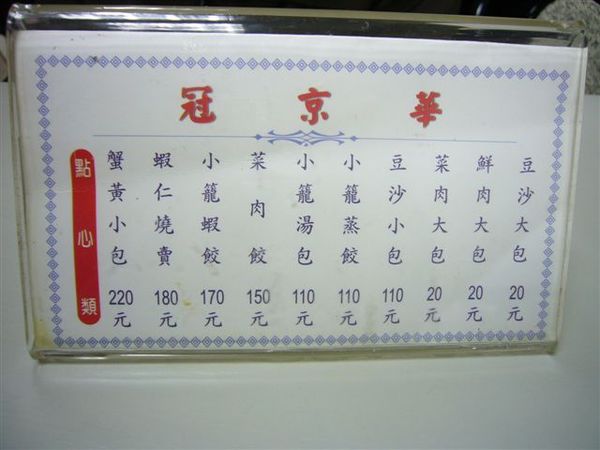 冠京華
點心類
蟹黃小包 220元
蝦仁燒賣 180元
小籠蝦餃 170元
菜肉餃 150元
小籠湯包 110元
小籠蒸餃 110元
豆沙小包 110元
菜肉大包 20元
鮮肉大包 20元
豆沙大包 20元